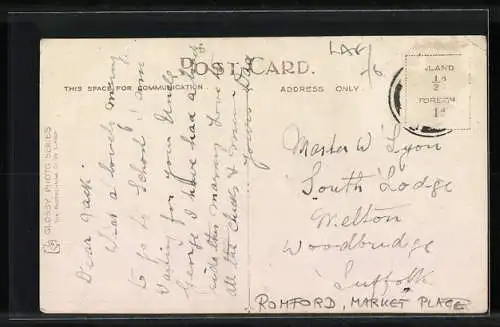 LA6/
/6
POST CARD.
THIS SPACE FOR COMMUNICATION
ADDRESS ONLY
NLAND
½d
FOREIGN
1d
GLOSSY PHOTO SERIES
Dear Jack
What a lovely morning
to go to School, I am
waiting for your Uncle
George. I have had a
ride this morning. Love to
all the Chicks & Mum
yours Dad
Master W Lyon
South Lodge
Melton
Woodbridge
Suffolk
ROMFORD, MARKET PLACE